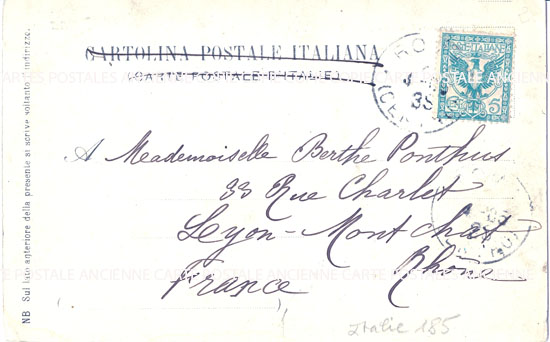 CARTOLINA POSTALE ITALIANA
(CARTE POSTALE D'ITALIE)
POSTE ITALIANE
5 5
RO
35
CARTES POSTALES ANCIENNE CARTE POSTALE ANCIENNE
A Mademoiselle Berthe Ponthus
33 Rue Charlet
Lyon-Montchat
Rhône
France
NB Sul lato anteriore della presente si scrive soltanto l'indirizzo.
Italie 185